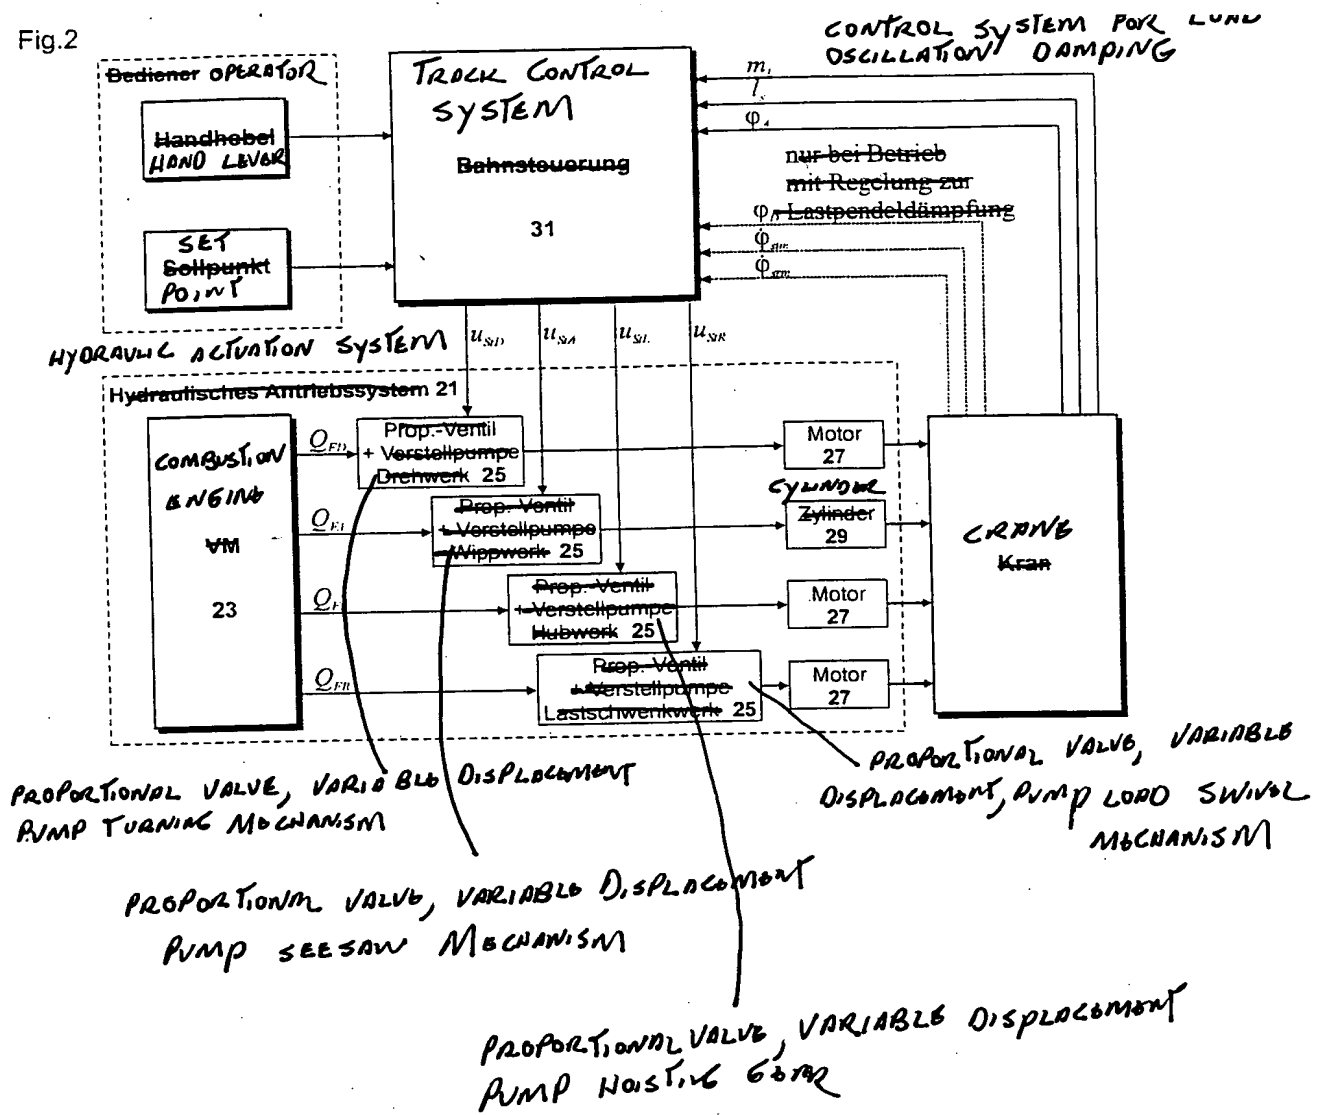 Fig.2
CONTROL SYSTEM FOR LOAD
OSCILLATION DAMPING
Bediener OPERATOR
Handhebel
HAND LEVER
SET
Sollpunkt
POINT
TRACK CONTROL
SYSTEM
Bahnsteuerung
31
m
l
φ
nur bei Betrieb
mit Regelung zur
φ Lastpendeldämpfung
φ̇
φ̇
u_StD u_StA u_StL u_StR
HYDRAULIC ACTUATION SYSTEM
Hydraulisches Antriebssystem 21
COMBUSTION
ENGINE
VM
23
Q_FD
Prop.-Ventil
+ Verstellpumpe
Drehwerk 25
Motor
27
Q
Prop.-Ventil
+ Verstellpumpe
Wippwerk 25
CYLINDER
Zylinder
29
Q
Prop.-Ventil
+ Verstellpumpe
Hubwerk 25
Motor
27
Q_FR
Prop.-Ventil
+ Verstellpumpe
Lastschwenkwerk 25
Motor
27
CRANE
Kran
PROPORTIONAL VALVE, VARIABLE DISPLACEMENT
PUMP TURNING MECHANISM
PROPORTIONAL VALVE, VARIABLE
DISPLACEMENT, PUMP LOAD SWIVEL
MECHANISM
PROPORTIONAL VALVE, VARIABLE DISPLACEMENT
PUMP SEESAW MECHANISM
PROPORTIONAL VALVE, VARIABLE DISPLACEMENT
PUMP HOISTING GEAR